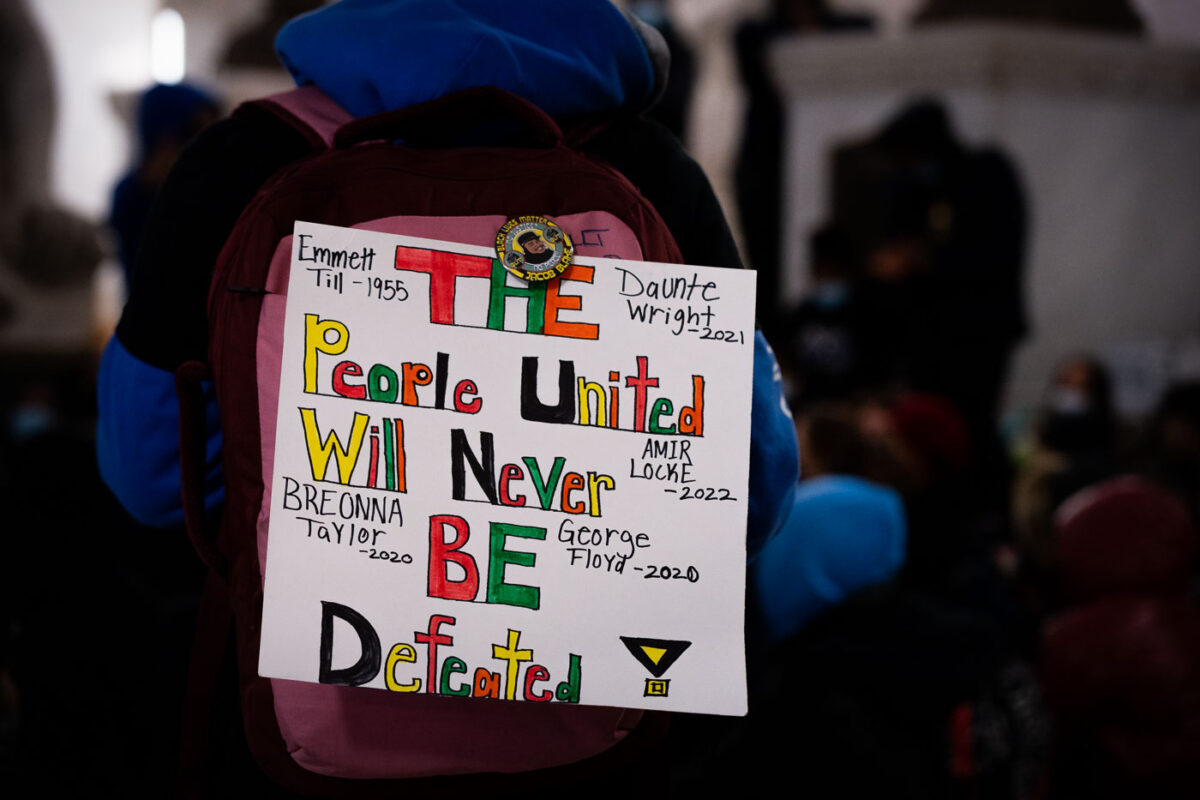 BLACK LIVES MATTER
JACOB BLAKE
Emmett
Till -1955
THE
Daunte
Wright
-2021
People United
Will Never
AMIR
LOCKE
-2022
BREONNA
Taylor
-2020
BE
George
Floyd -2020
Defeated